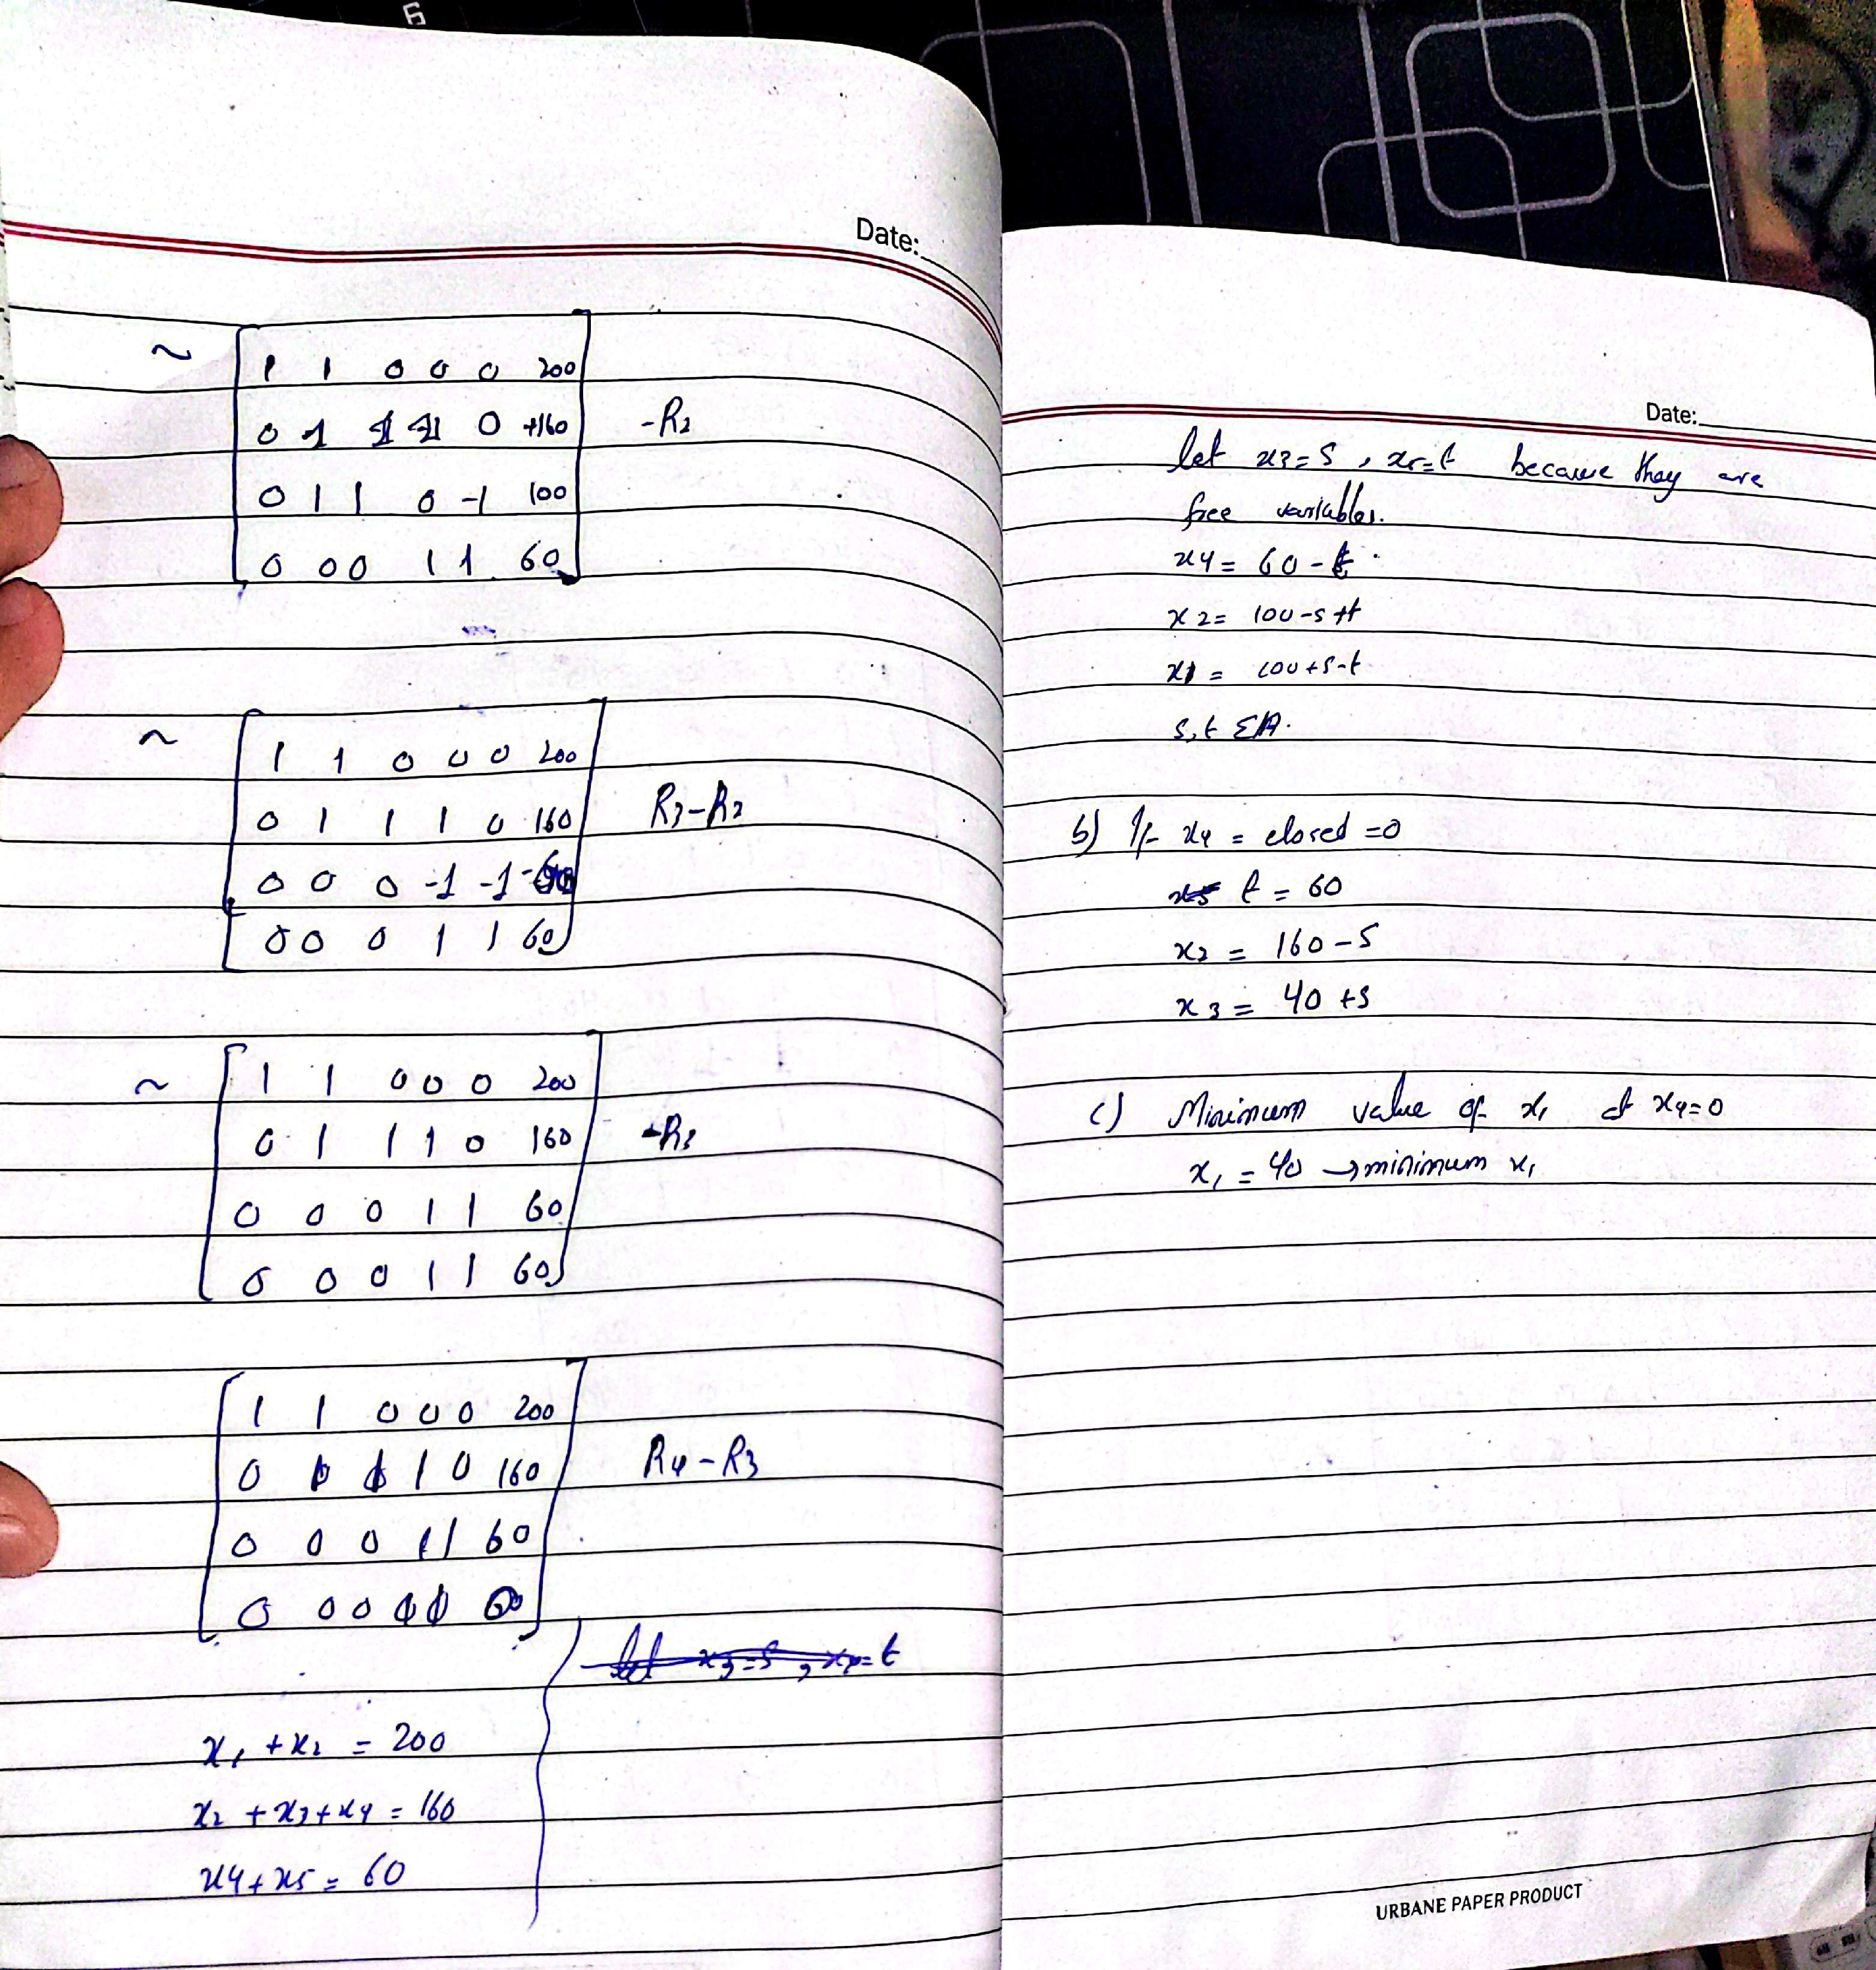 6
Date:
~ 1 1 0 0 0 200
0 1 1 1 0 +160 -R2
0 1 1 0 -1 100
0 0 0 1 1 60
~ 1 1 0 0 0 200
0 1 1 1 0 160 R3-R2
0 0 0 -1 -1 -60
0 0 0 1 1 60
~ 1 1 0 0 0 200
0 1 1 1 0 160 -R3
0 0 0 1 1 60
0 0 0 1 1 60
1 1 0 0 0 200
0 1 1 1 0 160 R4-R3
0 0 0 1 1 60
0 0 0 0 0 0
let x3=s, = t
x1 + x2 = 200
x2 + x3 + x4 = 160
x4 + x5 = 60
Date:
let x3=s, x5=t because they are
free variables.
x4 = 60-t.
x2 = 100-s+t
x1 = 100+s-t
s,t ∈ R.
b) If x4 = closed =0
x5 t = 60
x2 = 160-s
x3 = 40+s
c) Minimum value of x1 at x4=0
x1 = 40 → minimum x1
URBANE PAPER PRODUCT